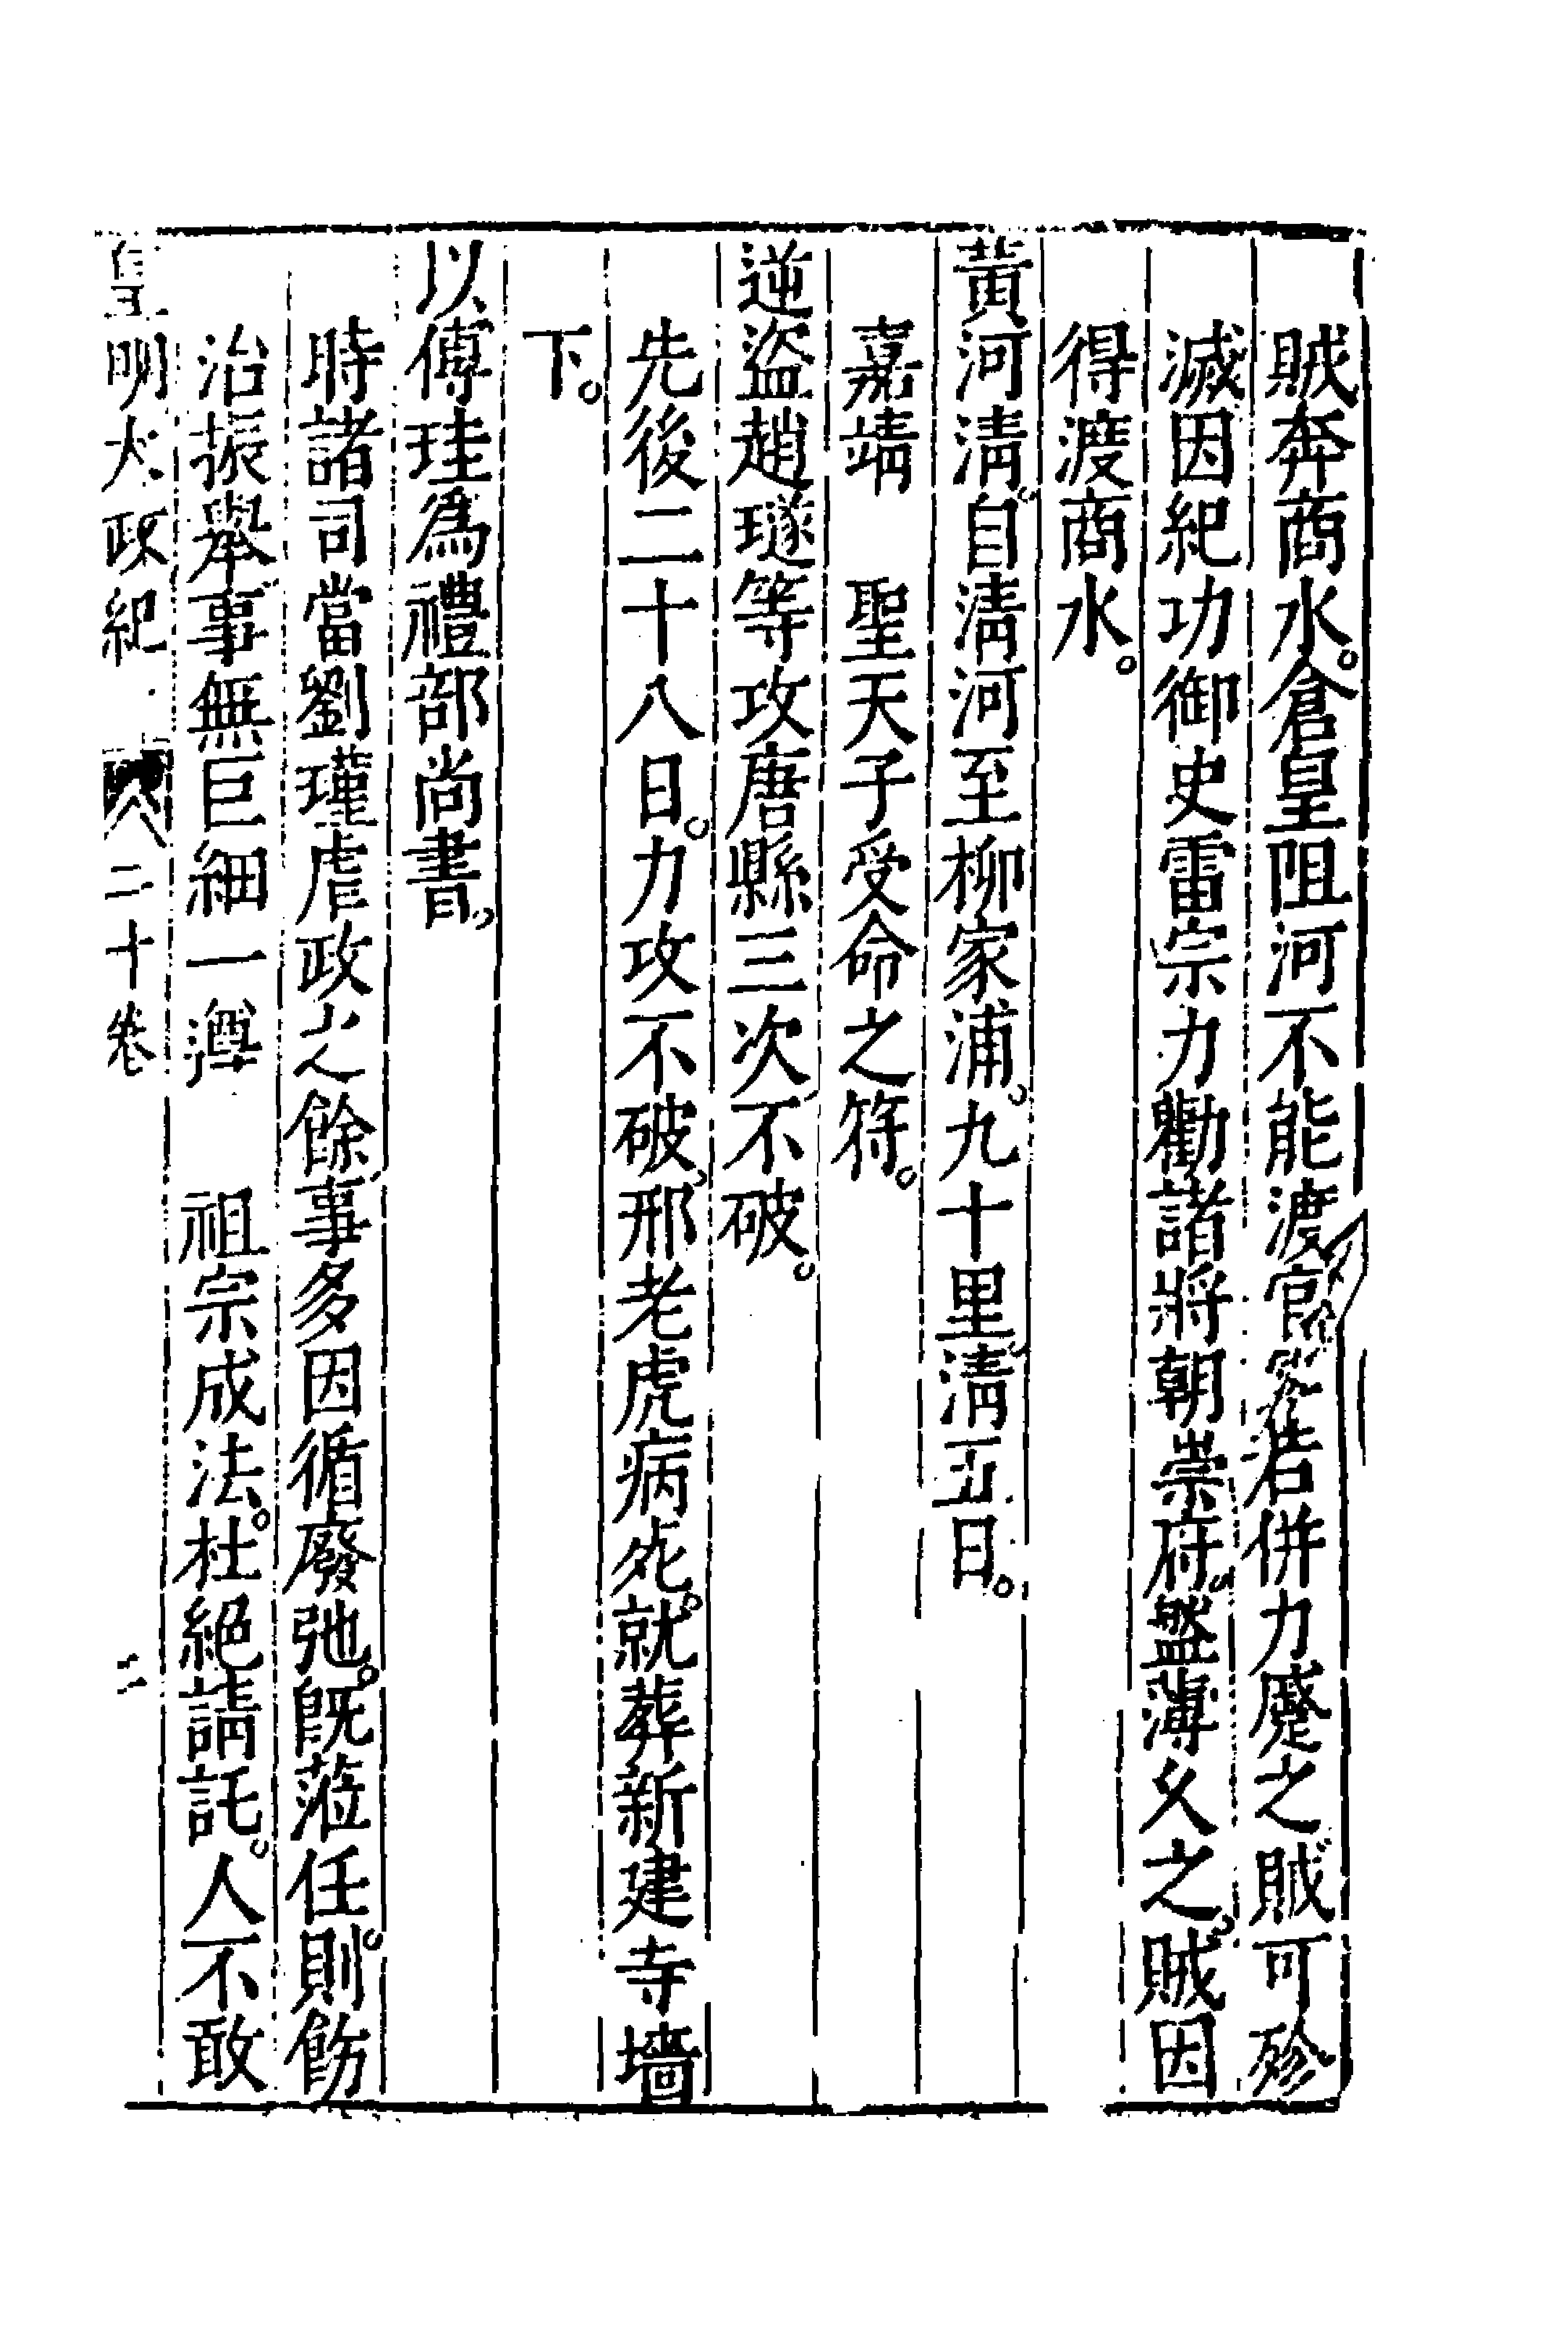 賊奔商水。倉皇阻河不能渡官若併力蹙之賊可殄
滅因紀功御史雷宗力勸諸將朝崇府。盤薄久之。賊因
得渡商水。
黃河清。自清河至柳家浦。九十里清五日。
嘉靖　聖天子受命之符。
逆盜趙璲等攻唐縣三次不破。
先後二十八日。力攻不破。邢老虎病死。就葬新建寺墻
下。
以傅珪爲禮部尚書。
時諸司當劉瑾虐政之餘事多因循廢弛。旣蒞任。則飭
治振舉事無巨細一遵　祖宗成法。杜絕請託。人不敢
皇明大政紀　二十卷　二